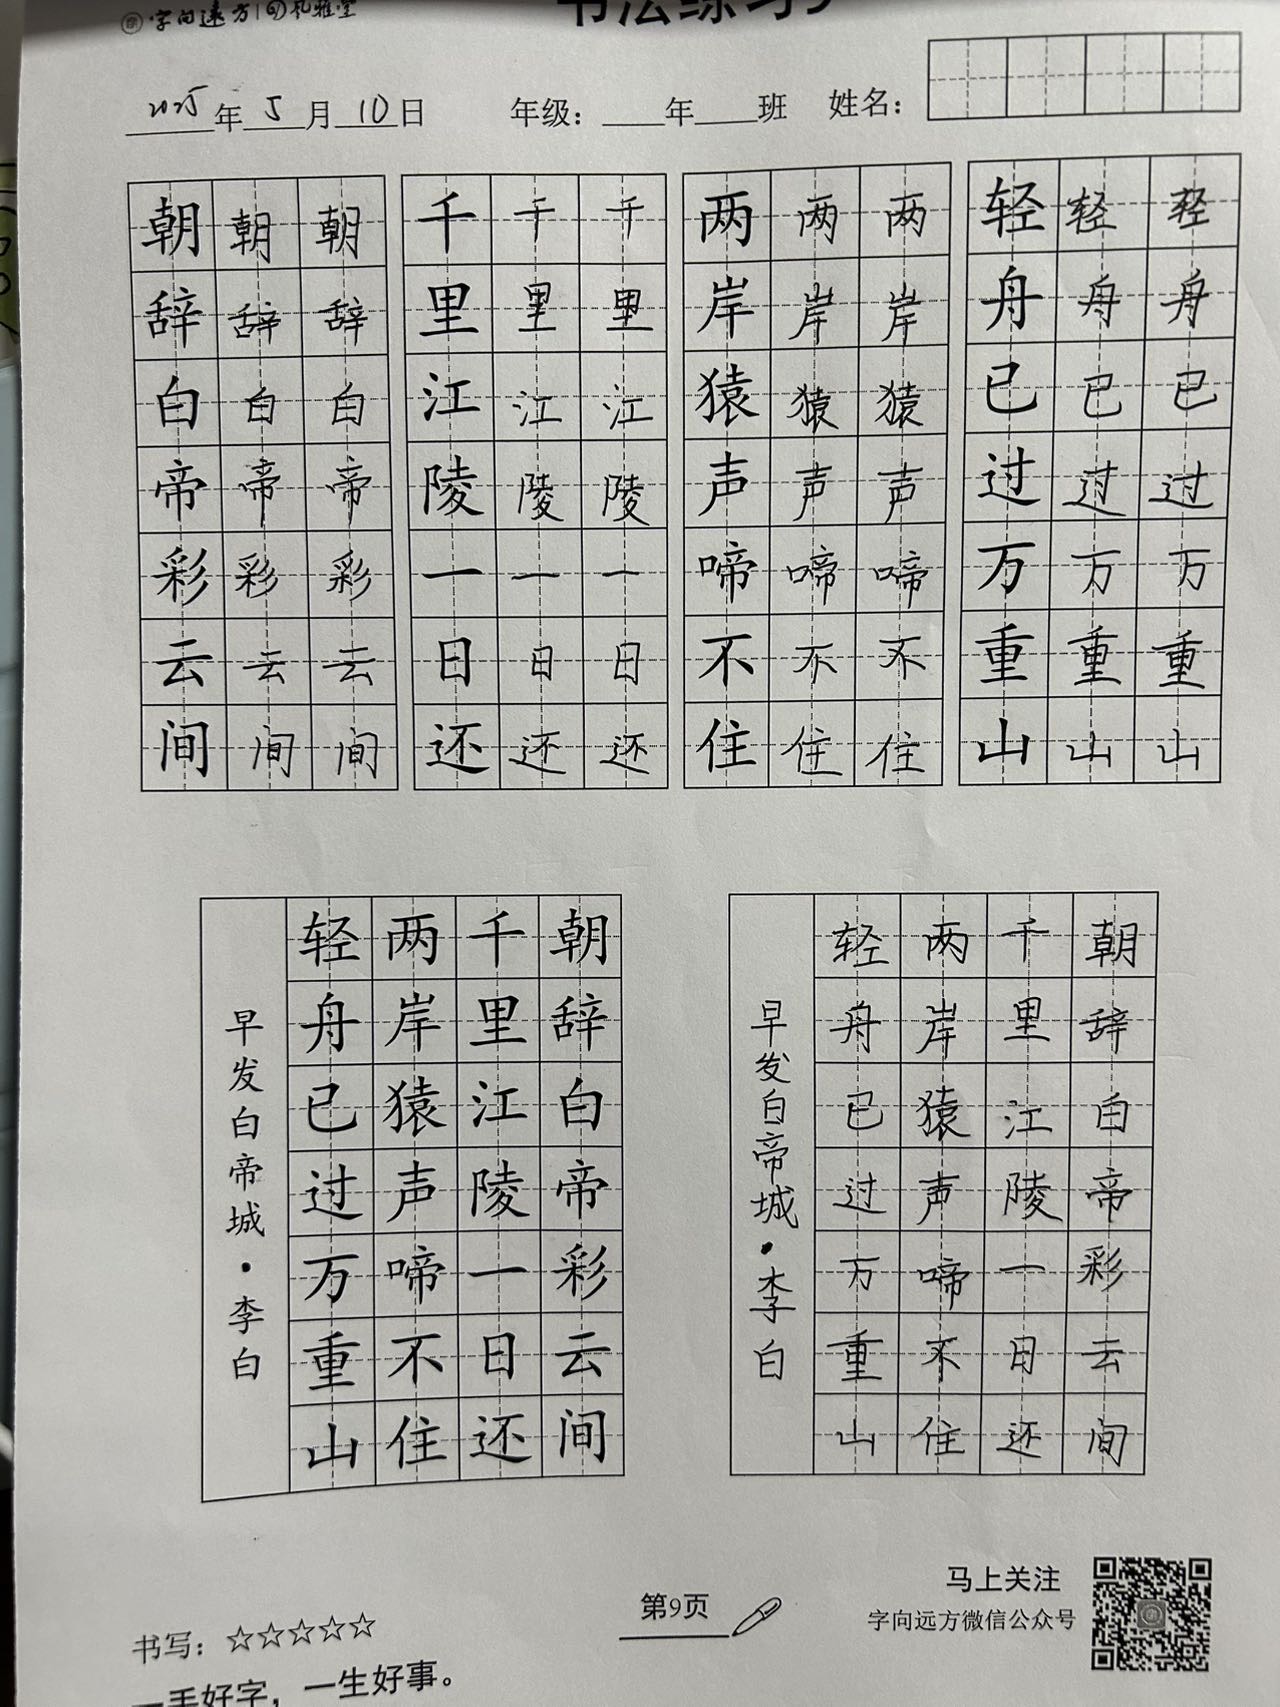 字向远方 | 风雅堂
书法练习
2025年5月10日 年级：____年____班 姓名：
朝朝朝 千千千 两两两 轻轻轻
辞辞辞 里里里 岸岸岸 舟舟舟
白白白 江江江 猿猿猿 已已已
帝帝帝 陵陵陵 声声声 过过过
彩彩彩 一一一 啼啼啼 万万万
云云云 日日日 不不不 重重重
间间间 还还还 住住住 山山山
朝辞白帝彩云间
千里江陵一日还
两岸猿声啼不住
轻舟已过万重山
早发白帝城·李白
朝辞白帝彩云间
千里江陵一日还
两岸猿声啼不住
轻舟已过万重山
早发白帝城·李白
书写：☆☆☆☆☆
一手好字，一生好事。
第9页
马上关注
字向远方微信公众号